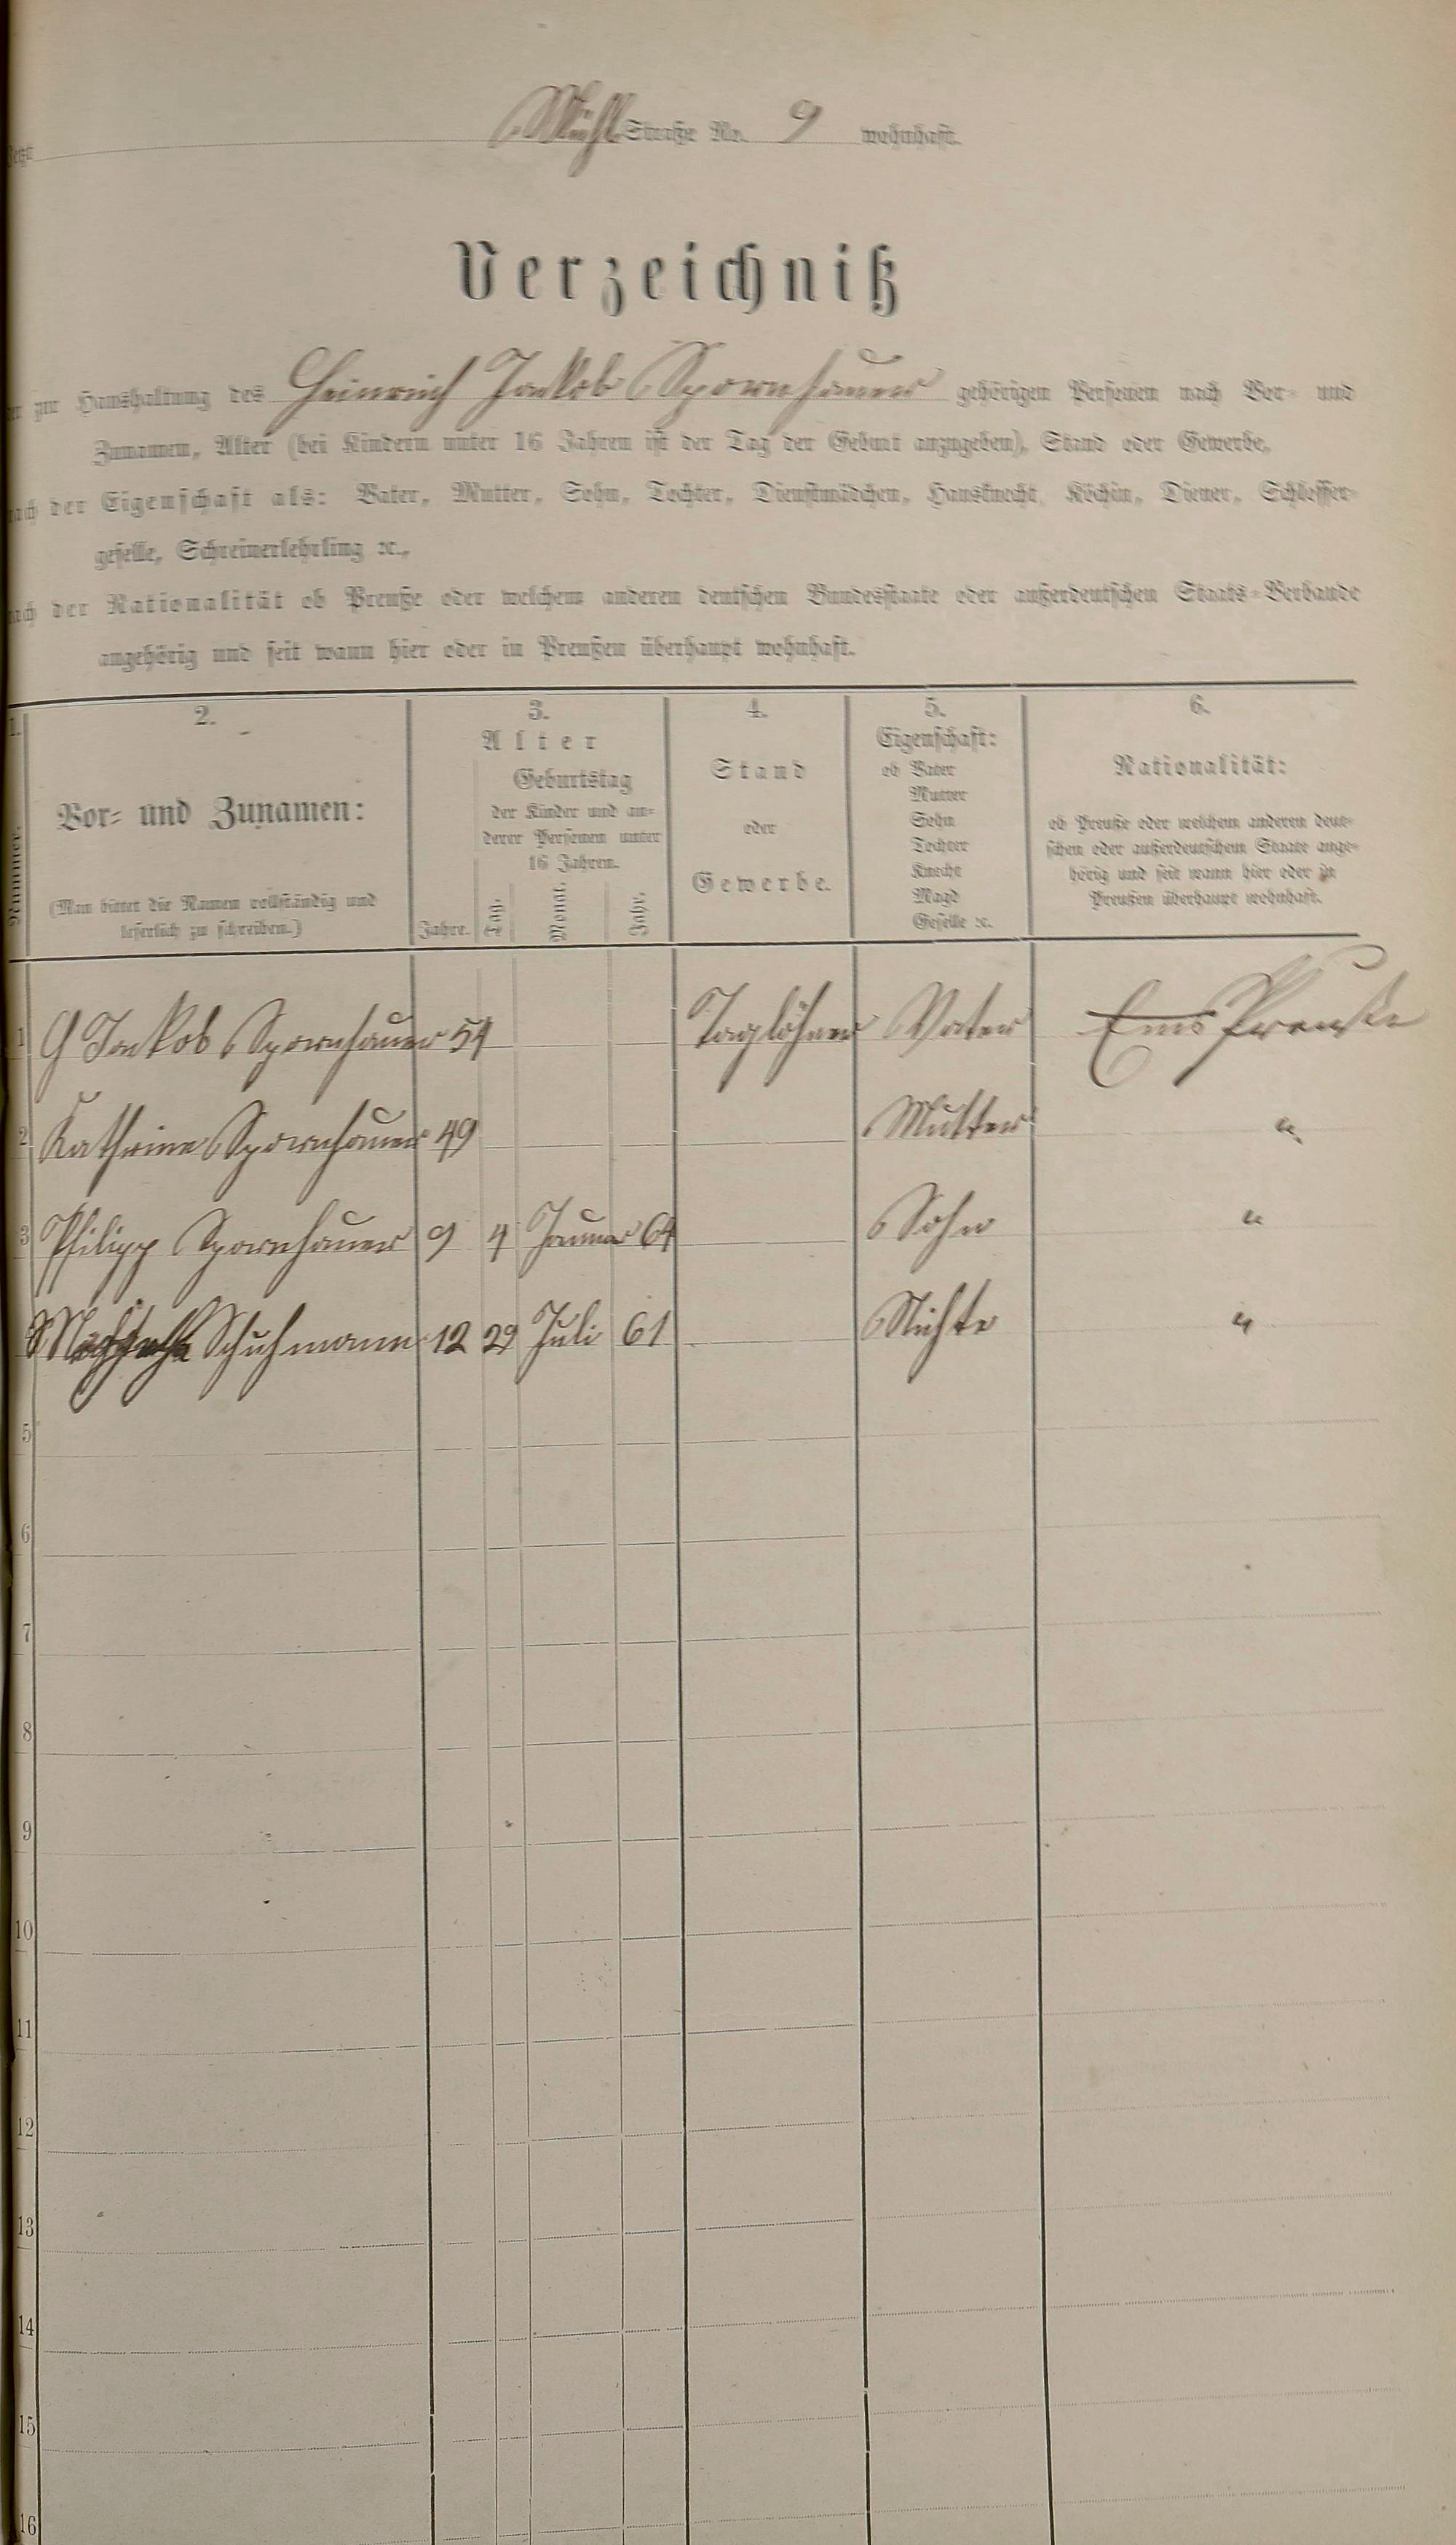 Jetzt Mühl Straße No. 9 wohnhaft.
Verzeichniß
der zur Haushaltung des Heinrich Jakob Spornhauer gehörigen Personen nach Vor- und
Zunamen, Alter (bei Kindern unter 16 Jahren ist der Tag der Geburt anzugeben), Stand oder Gewerbe,
nach der Eigenschaft als: Vater, Mutter, Sohn, Tochter, Dienstmädchen, Hausknecht, Köchin, Diener, Schlosser-
geselle, Schreinerlehrling ꝛc.,
nach der Nationalität ob Preuße oder welchem anderen deutschen Bundesstaate oder außerdeutschen Staats-Verbande
angehörig und seit wann hier oder in Preußen überhaupt wohnhaft.
1. 2. 3. 4. 5. 6.
Nummer.
Vor- und Zunamen:
(Man bittet die Namen vollständig und
leserlich zu schreiben.)
Alter
Geburtstag
der Kinder und an-
derer Personen unter
16 Jahren.
Jahre. Tag. Monat. Jahr.
Stand
oder
Gewerbe.
Eigenschaft:
ob Vater
Mutter
Sohn
Tochter
Knecht
Magd
Geselle ꝛc.
Nationalität:
ob Preuße oder welchem anderen deut-
schen oder außerdeutschem Staate ange-
hörig und seit wann hier oder in
Preußen überhaupt wohnhaft.
1 H Jakob Spornhauer 54 Taglöhner Vater Ems Preuße
2 Kathrine Spornhauer 49 Mutter "
3 Philipp Spornhauer 9 4 Januar 64 Sohn "
Schuhmann 12 29 Juli 61 Nichte "
5
6
7
8
9
10
11
12
13
14
15
16